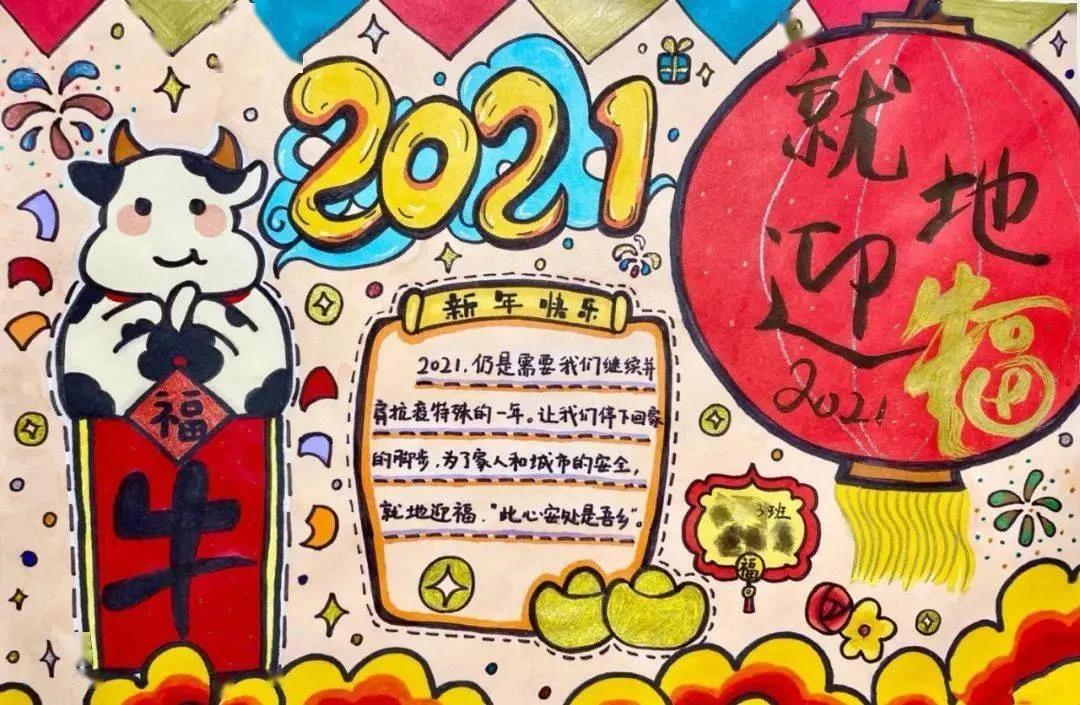 2021
就地
迎福
2021
福
牛
新年快乐
2021,仍是需要我们继续并
肩抗疫特殊的一年。让我们停下回家
的脚步,为了家人和城市的安全,
就地迎福,"此心安处是吾乡"。
3班
福